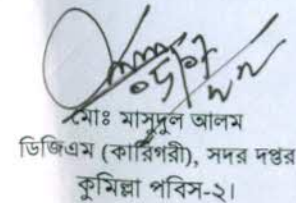 মোঃ মাসুদুল আলম
ডিজিএম (কারিগরী), সদর দপ্তর
কুমিল্লা পবিস-২।